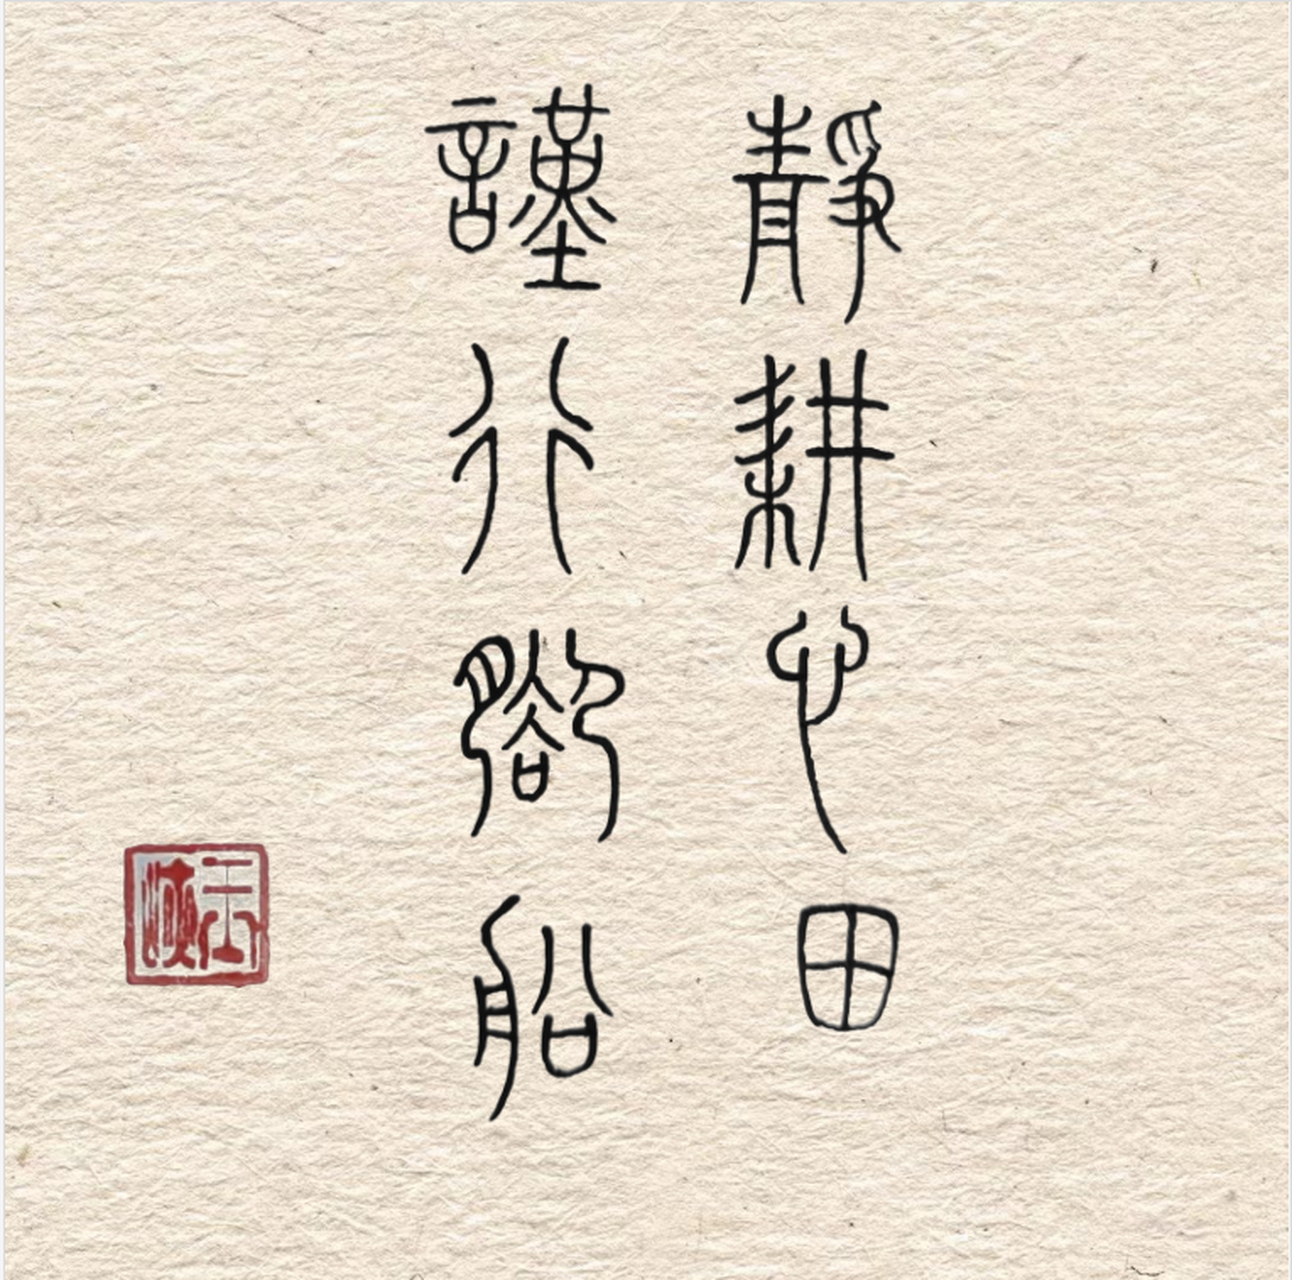 靜耕心田
謹行船